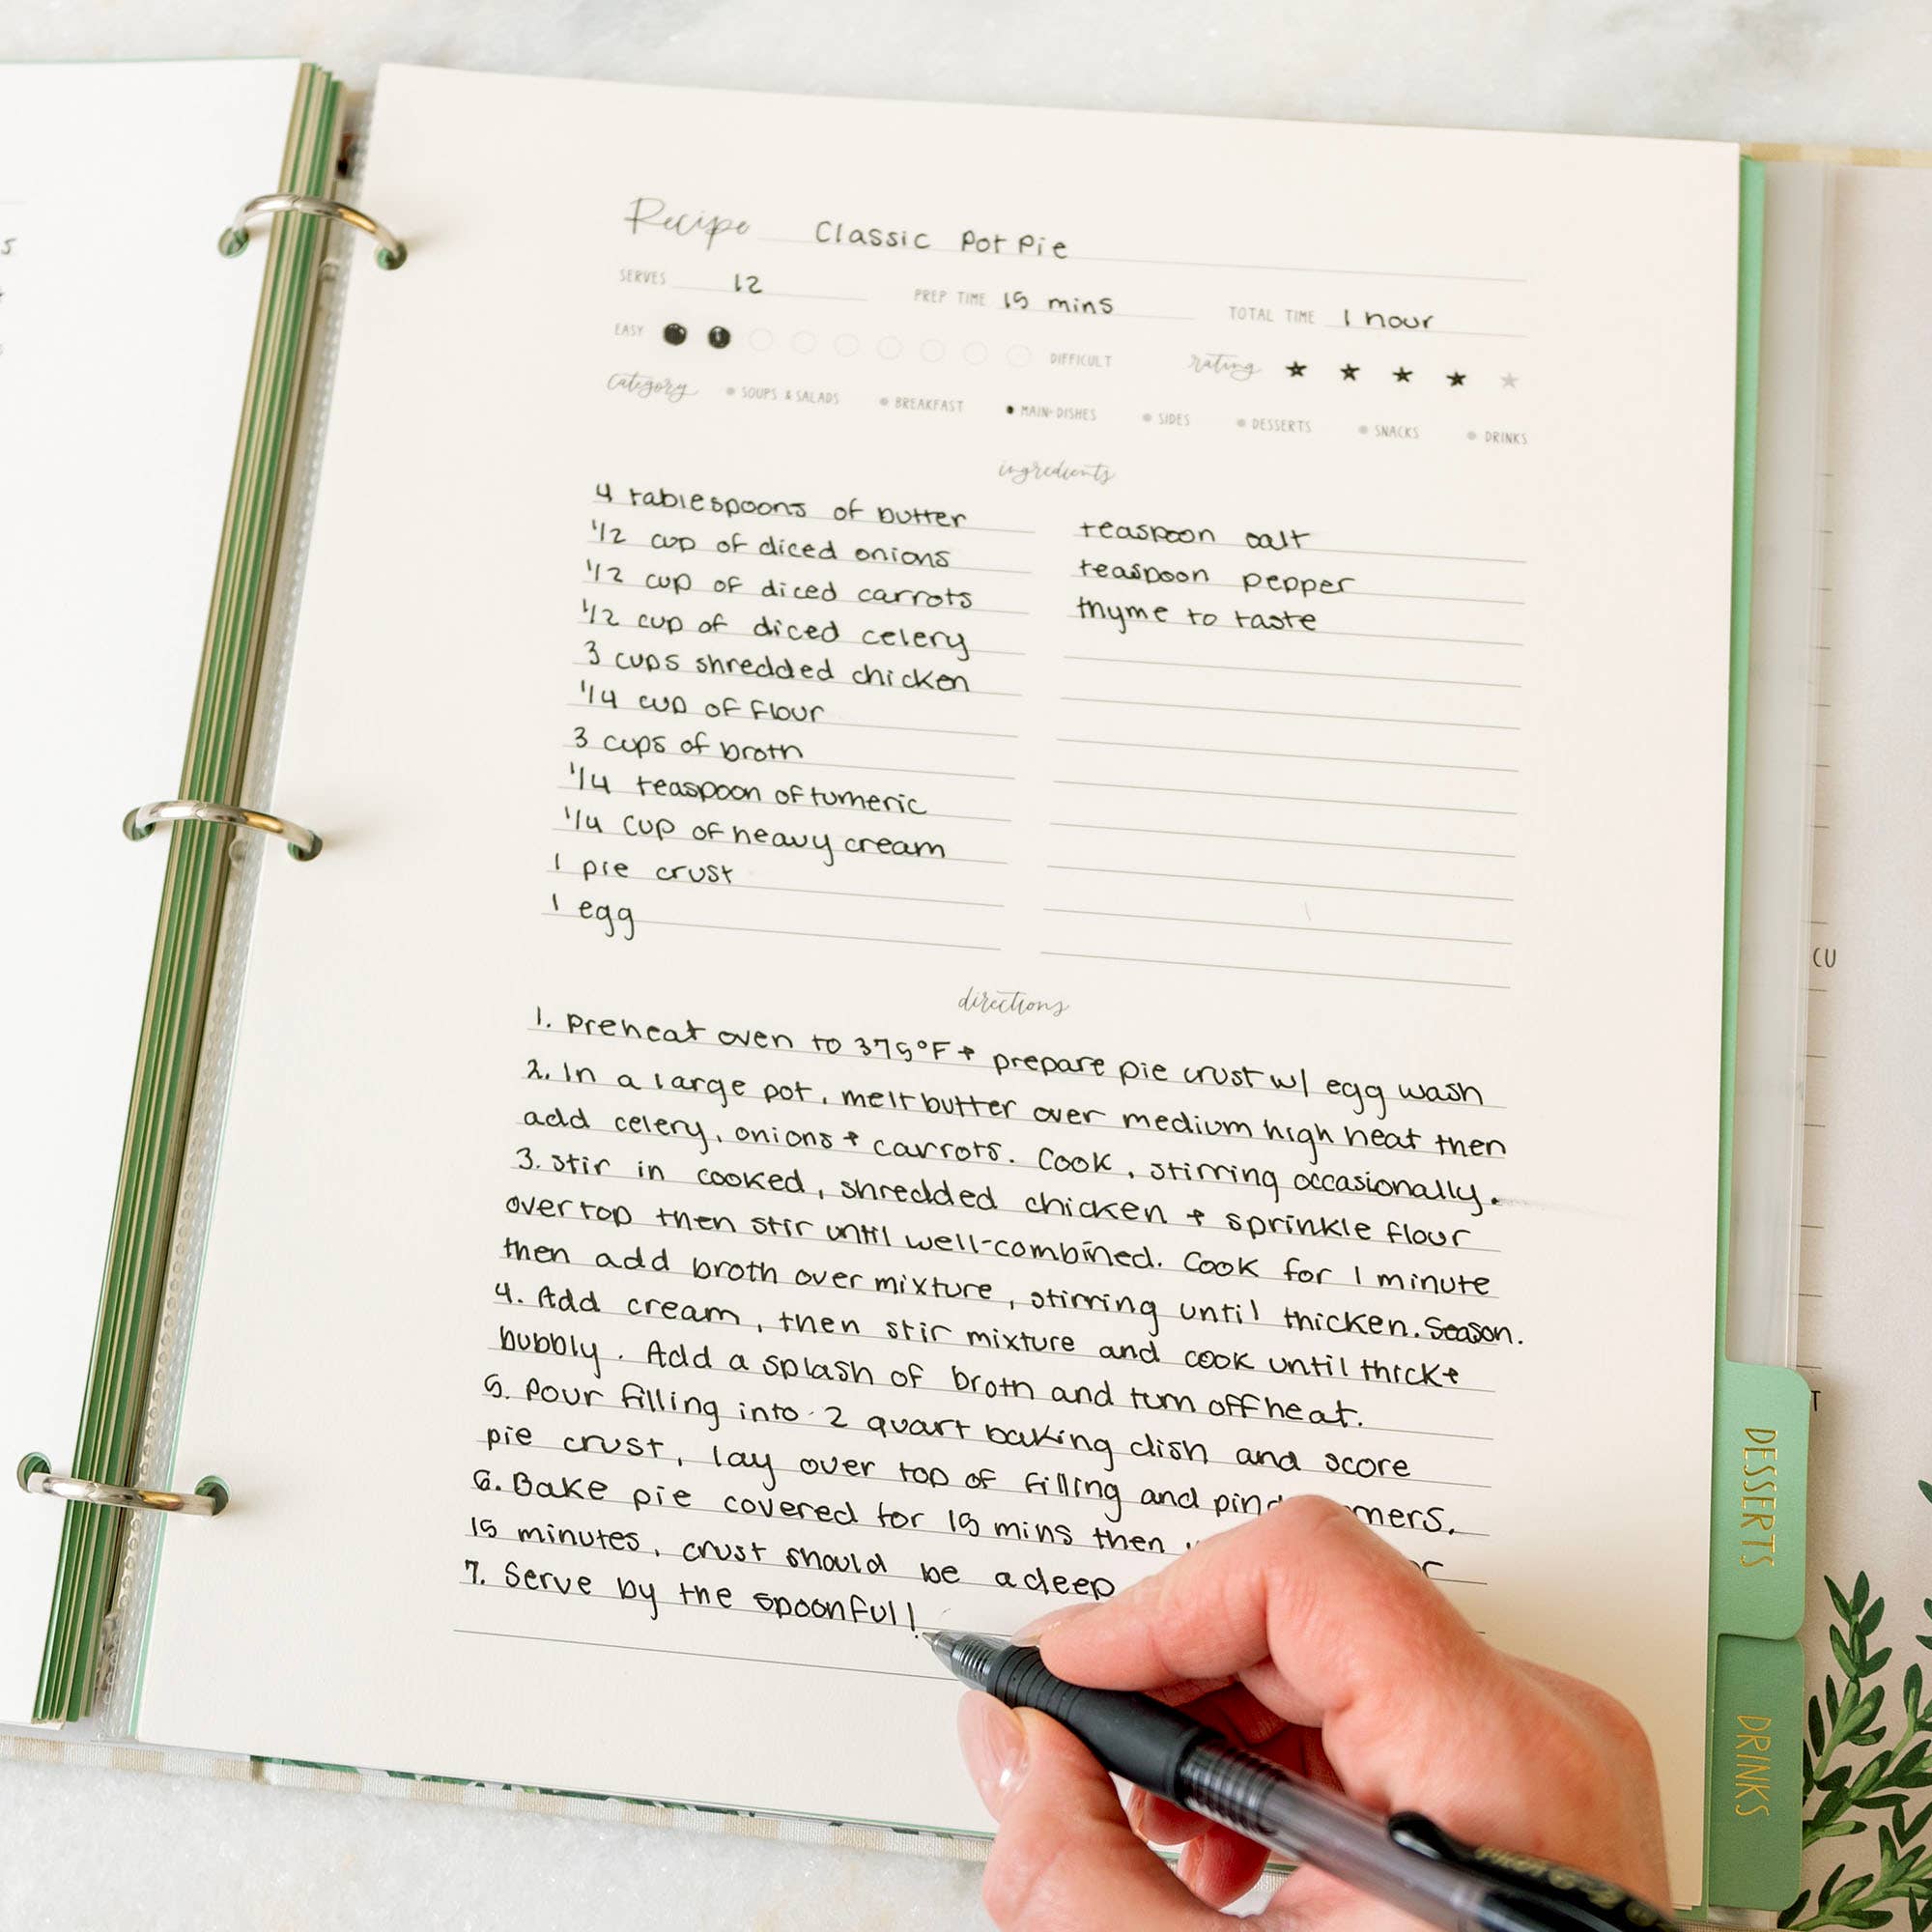 Recipe Classic Pot Pie
SERVES 12 PREP TIME 15 mins TOTAL TIME 1 hour
EASY DIFFICULT rating
category SOUPS & SALADS BREAKFAST MAIN-DISHES SIDES DESSERTS SNACKS DRINKS
ingredients
4 tablespoons of butter
1/2 cup of diced onions
1/2 cup of diced carrots
1/2 cup of diced celery
3 cups shredded chicken
1/4 cup of flour
3 cups of broth
1/4 teaspoon of tumeric
1/4 cup of heavy cream
1 pie crust
1 egg
teaspoon salt
teaspoon pepper
thyme to taste
directions
1. Preheat oven to 375°F + prepare pie crust w/ egg wash
2. In a large pot, melt butter over medium high heat then
add celery, onions + carrots. Cook, stirring occasionally.
3. stir in cooked, shredded chicken + sprinkle flour
over top then stir until well-combined. Cook for 1 minute
then add broth over mixture, stirring until thicken. Season.
4. Add cream, then stir mixture and cook until thick +
bubbly. Add a splash of broth and turn off heat.
5. Pour filling into 2 quart baking dish and score
pie crust, lay over top of filling and
6. Bake pie covered for 15 mins then
15 minutes, crust should be a deep
7. Serve by the spoonful!
DESSERTS
DRINKS
CU
T
5